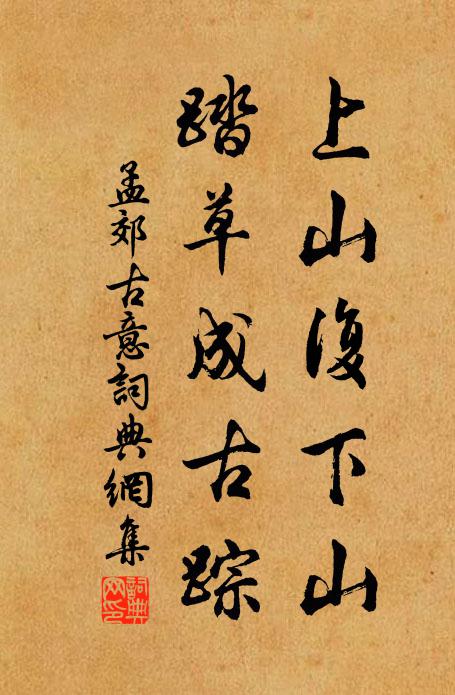 上山復下山
踏草成古踪
孟郊古意詞典網集
詞典網印